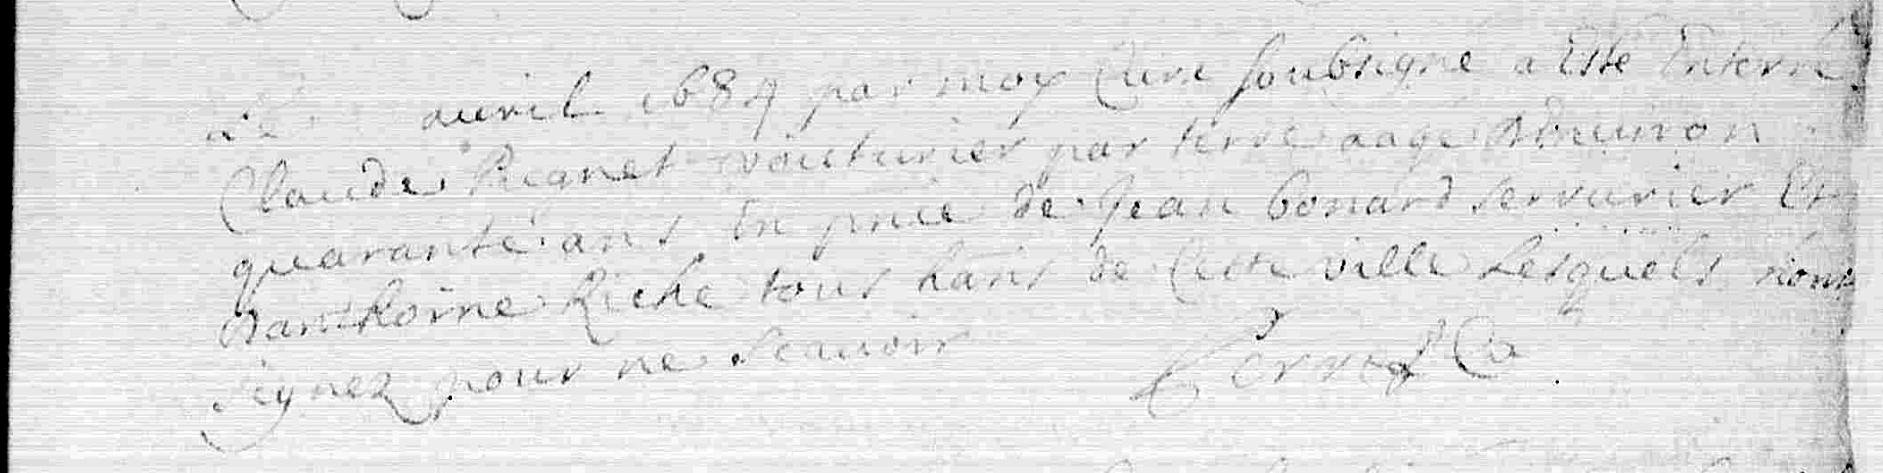 Le avril 1684 par moy Cure soubsigne a este Enterre
Claude voicturier par terre aage denviron
quarante ans En pnce de Jean bonard serrurier Et
danthoine Riche tous hans de Cette ville Lesquels nont
signez pour ne scavoir